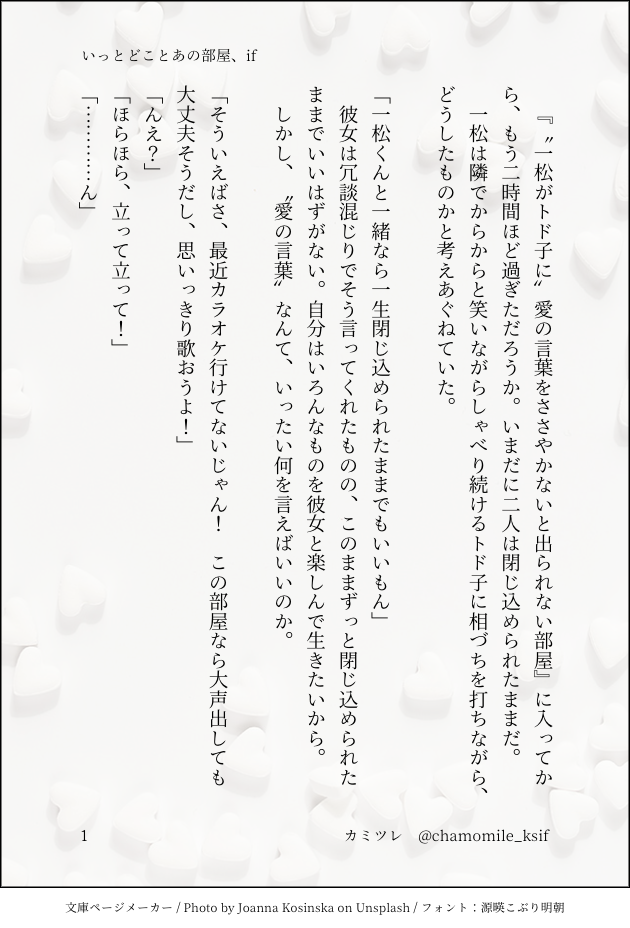 いっとどことあの部屋、if
『〝一松がトド子に〟愛の言葉をささやかないと出られない部屋』に入ってか
ら、もう二時間ほど過ぎただろうか。いまだに二人は閉じ込められたままだ。
一松は隣でからからと笑いながらしゃべり続けるトド子に相づちを打ちながら、
どうしたものかと考えあぐねていた。
「一松くんと一緒なら一生閉じ込められたままでもいいもん」
彼女は冗談混じりでそう言ってくれたものの、このままずっと閉じ込められた
ままでいいはずがない。自分はいろんなものを彼女と楽しんで生きたいから。
しかし、〝愛の言葉〟なんて、いったい何を言えばいいのか。
「そういえばさ、最近カラオケ行けてないじゃん！　この部屋なら大声出しても
大丈夫そうだし、思いっきり歌おうよ！」
「んえ？」
「ほらほら、立って立って！」
「…………ん」
1
カミツレ　@chamomile_ksif
文庫ページメーカー / Photo by Joanna Kosinska on Unsplash / フォント：源暎こぶり明朝